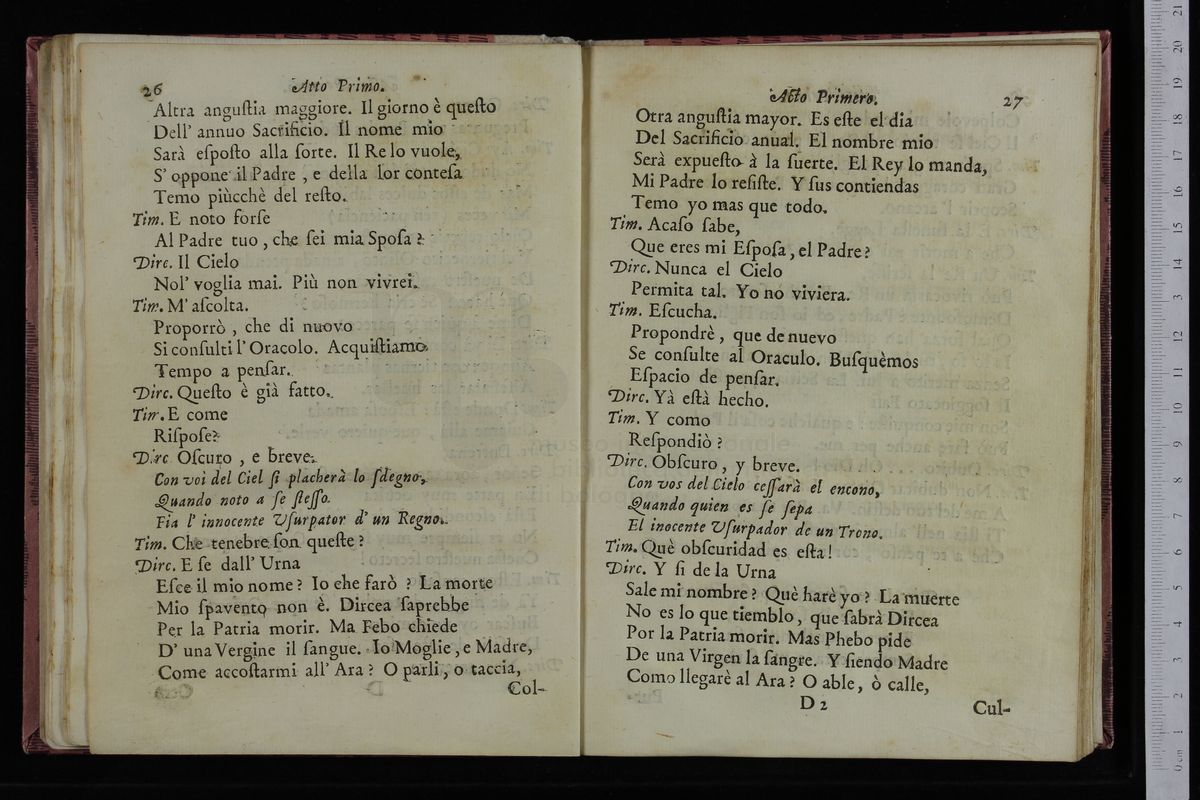 26 Atto Primo.
Altra anguſtia maggiore. Il giorno è queſto
Dell' annuo Sacrificio. Il nome mio
Sarà eſpoſto alla ſorte. Il Re lo vuole,
S' oppone il Padre , e della lor conteſa
Temo piùcchè del reſto.
Tim. E noto forſe
Al Padre tuo , che ſei mia Spoſa ?
Dirc. Il Cielo
Nol' voglia mai. Più non vivrei.
Tim. M' aſcolta.
Proporrò , che di nuovo
Si conſulti l' Oracolo. Acquiſtiamo
Tempo a penſar.
Dirc. Queſto è già fatto.
Tim. E come
Riſpoſe?
Dirc Oſcuro , e breve.
Con voi del Ciel ſi placherà lo ſdegno,
Quando noto a ſe ſteſſo.
Fia l' innocente Vſurpator d' un Regno.
Tim. Che tenebre ſon queſte ?
Dirc. E ſe dall' Urna
Eſce il mio nome ? Io che farò ? La morte
Mio ſpavento non è. Dircea ſaprebbe
Per la Patria morir. Ma Febo chiede
D' una Vergine il ſangue. Io Moglie , e Madre,
Come accoſtarmi all' Ara ? O parli , o taccia,
Col-
Acto Primero. 27
Otra anguſtia mayor. Es eſte el dia
Del Sacrificio anual. El nombre mio
Serà expueſto à la ſuerte. El Rey lo manda,
Mi Padre lo reſiſte. Y ſus contiendas
Temo yo mas que todo.
Tim. Acaſo ſabe,
Que eres mi Eſpoſa , el Padre ?
Dirc. Nunca el Cielo
Permita tal. Yo no viviera.
Tim. Eſcucha.
Propondrè , que de nuevo
Se conſulte al Oraculo. Buſquèmos
Eſpacio de penſar.
Dirc. Yà eſtà hecho.
Tim. Y como
Reſpondiò ?
Dirc. Obſcuro , y breve.
Con vos del Cielo ceſſarà el encono,
Quando quien es ſe ſepa
El inocente Vſurpador de un Trono.
Tim. Què obſcuridad es eſta !
Dirc. Y ſi de la Urna
Sale mi nombre ? Què harè yo ? La muerte
No es lo que tiemblo , que ſabrà Dircea
Por la Patria morir. Mas Phebo pide
De una Virgen la ſangre. Y ſiendo Madre
Como llegarè al Ara ? O able, ò calle,
D 2
Cul-